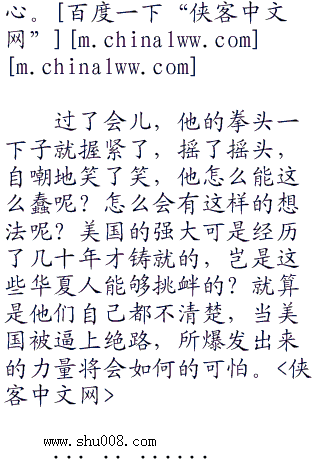 心。[百度一下“侠客中文
网”][m.chinalww.com]
[m.chinalww.com]
过了会儿，他的拳头一
下子就握紧了，摇了摇头，
自嘲地笑了笑，他怎么能这
么蠢呢？怎么会有这样的想
法呢？美国的强大可是经历
了几十年才铸就的，岂是这
些华夏人能够挑衅的？就算
是他们自己都不清楚，当美
国被逼上绝路，所爆发出来
的力量将会如何的可怕。<侠
客中文网>
www.shu008.com
... .. ......